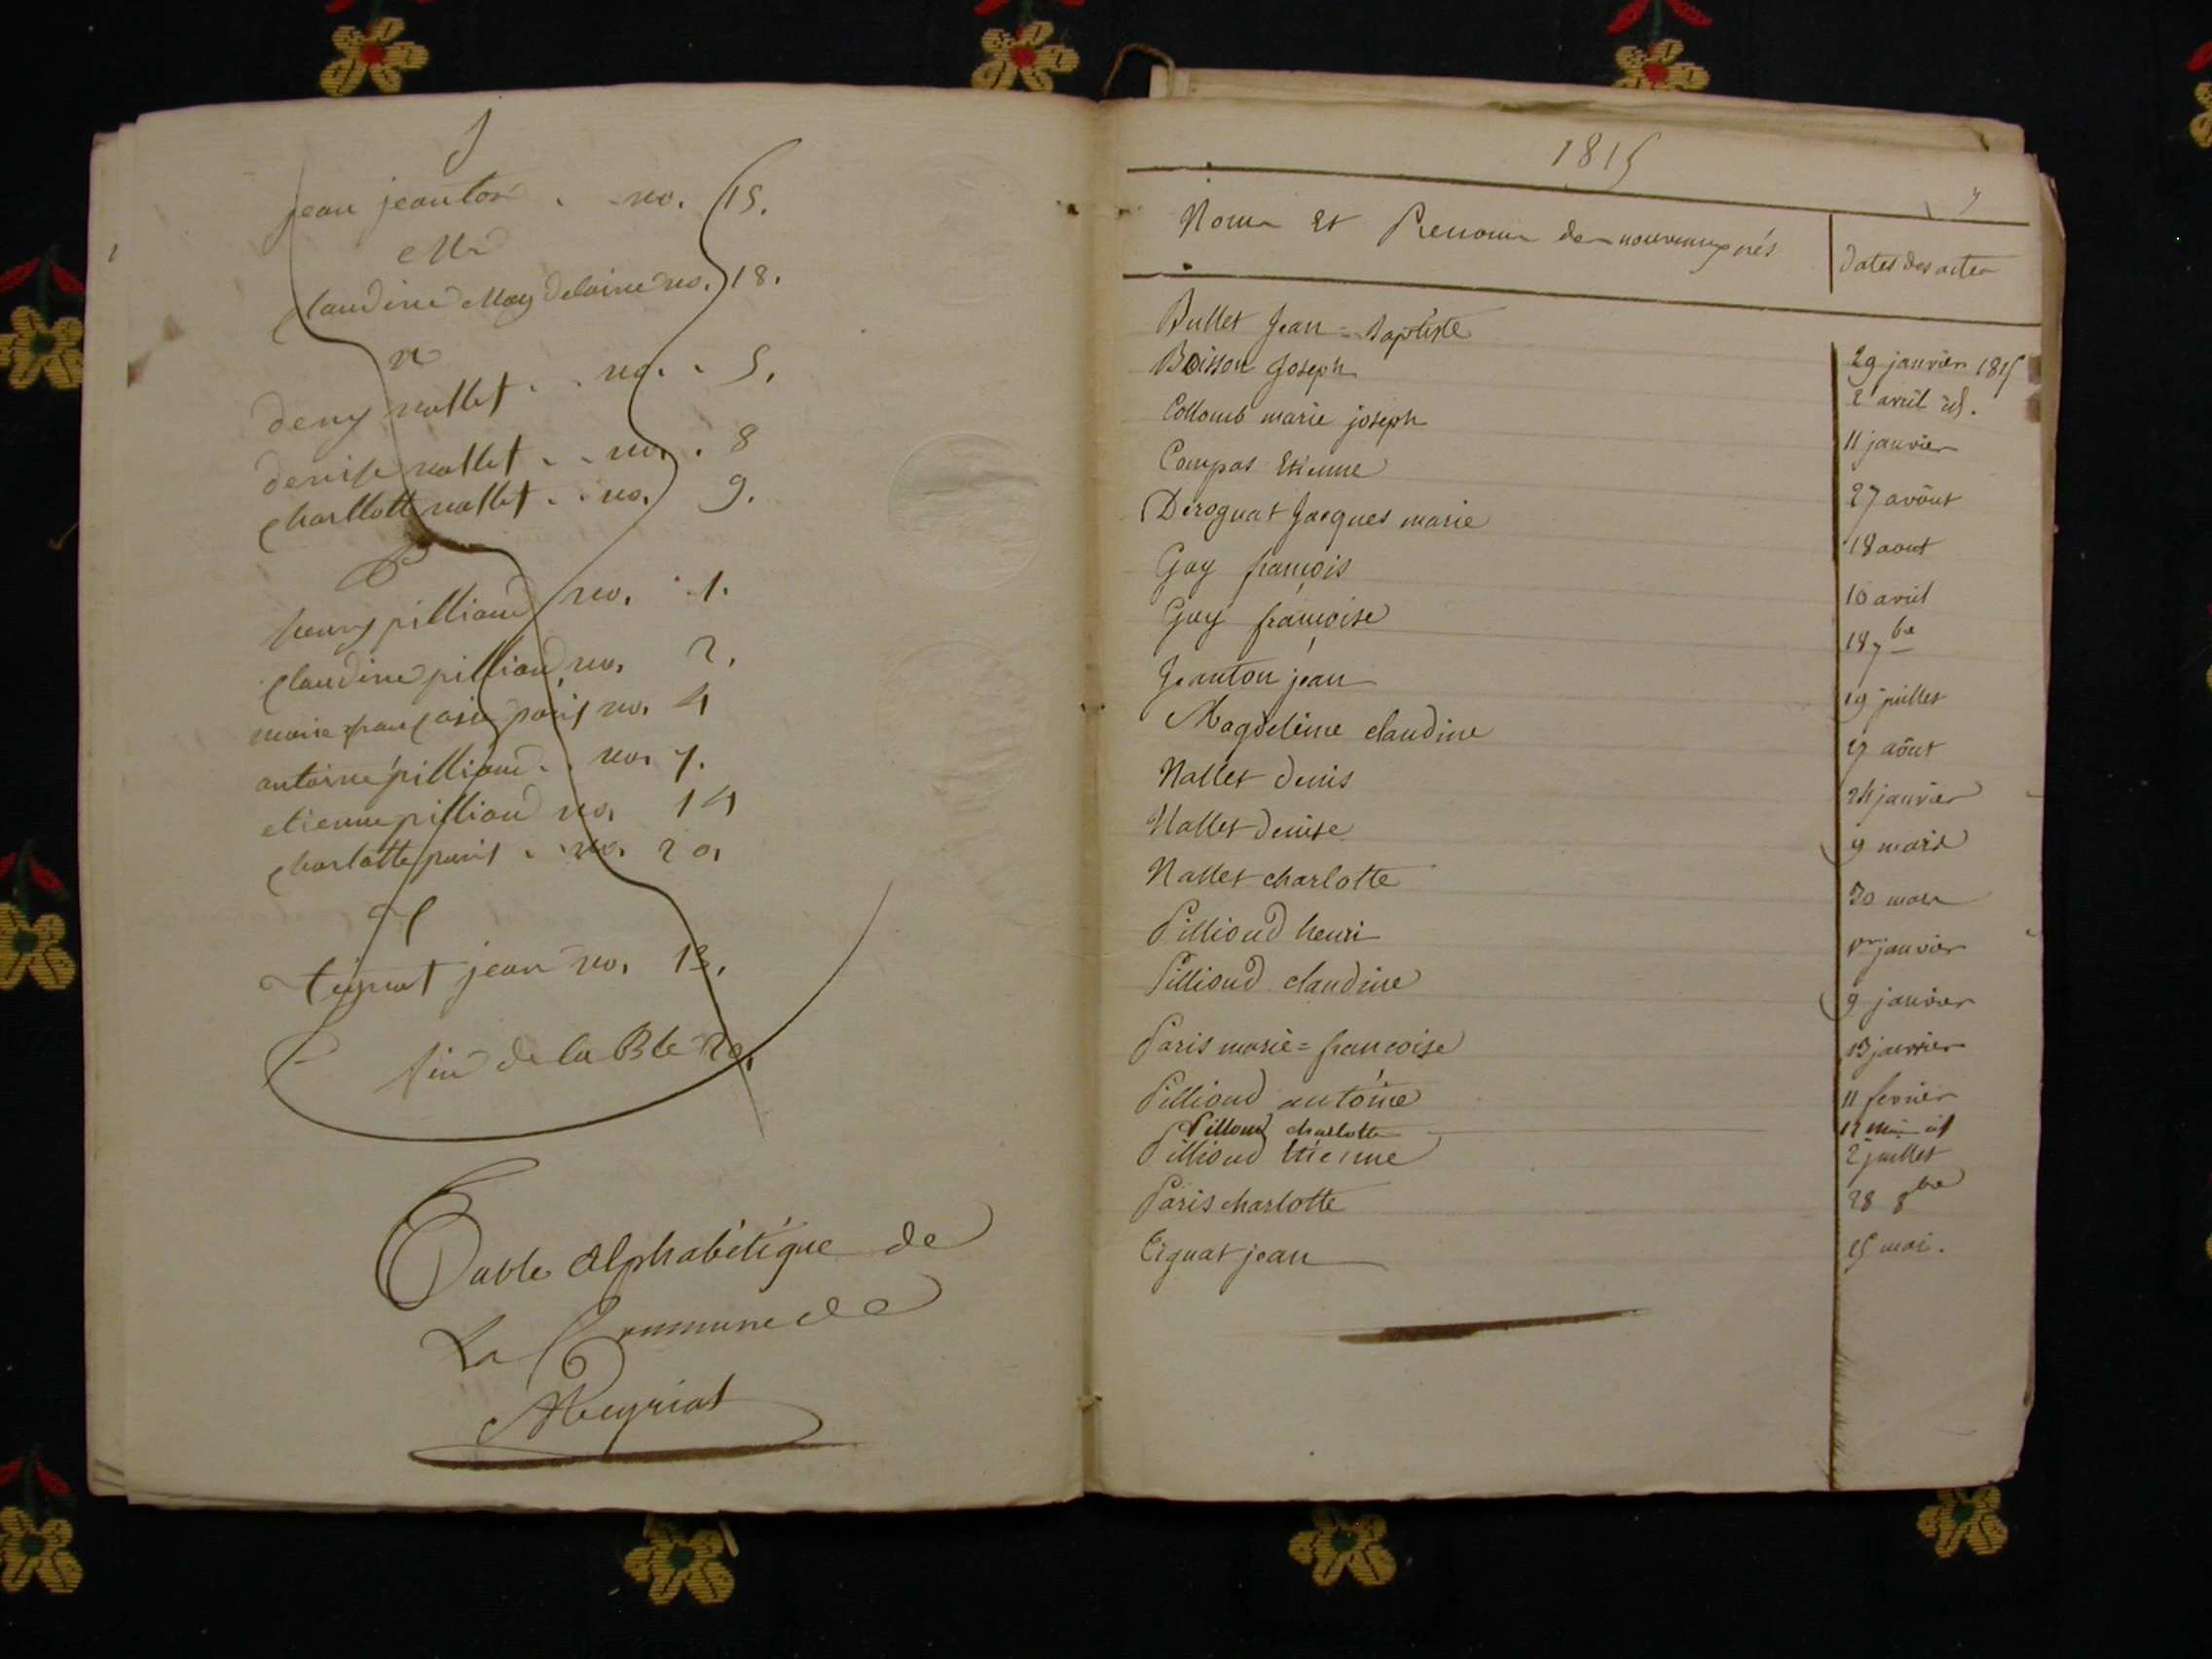 J
jean jeanton . . no. 15.
M
Claudine Magdelaine no. 18.
N
deny nallet . . no. . 5.
denise nallet . . no. . 8
Charllotte nallet . . no. 9.
P
henry pillioud no. 1.
Claudine pillioud no. 2.
marie françoise paris no. 4
antoine pillioud . . no. 7.
etienne pillioud no. 14
Charlotte paris . . no. 20.
T
tignat jean no. 13.
fin de la Ble
Table Alphabétique de
La Commune de
Meyriat
1815
Noms Et Prenoms des nouveaux nés
dates des actes
Bullet Jean = Baptiste 29 janvier 1815
Boisson Joseph 2 avril id.
Collomb marie joseph 11 janvier
Compas Etienne 27 avôut
Deroguat Jacques marie 18 aout
Guy françois 10 avril
Guy françoise 18 7bre
Jeanton jean 19 juillet
Magdeleine claudine 27 aôut
Nallet denis 24 janvier
Nallet denise 9 mars
Nallet charlotte 30 mars
Pillioud henri 1er janvier
Pillioud claudine 9 janvier
Paris marie = francoise 13 janvier
Pillioud antoine 11 fevrier
Pilloud charlotte 12 mai id
Pillioud Etienne 2 juillet
Paris charlotte 28 8bre
Tignat jean 25 mai.